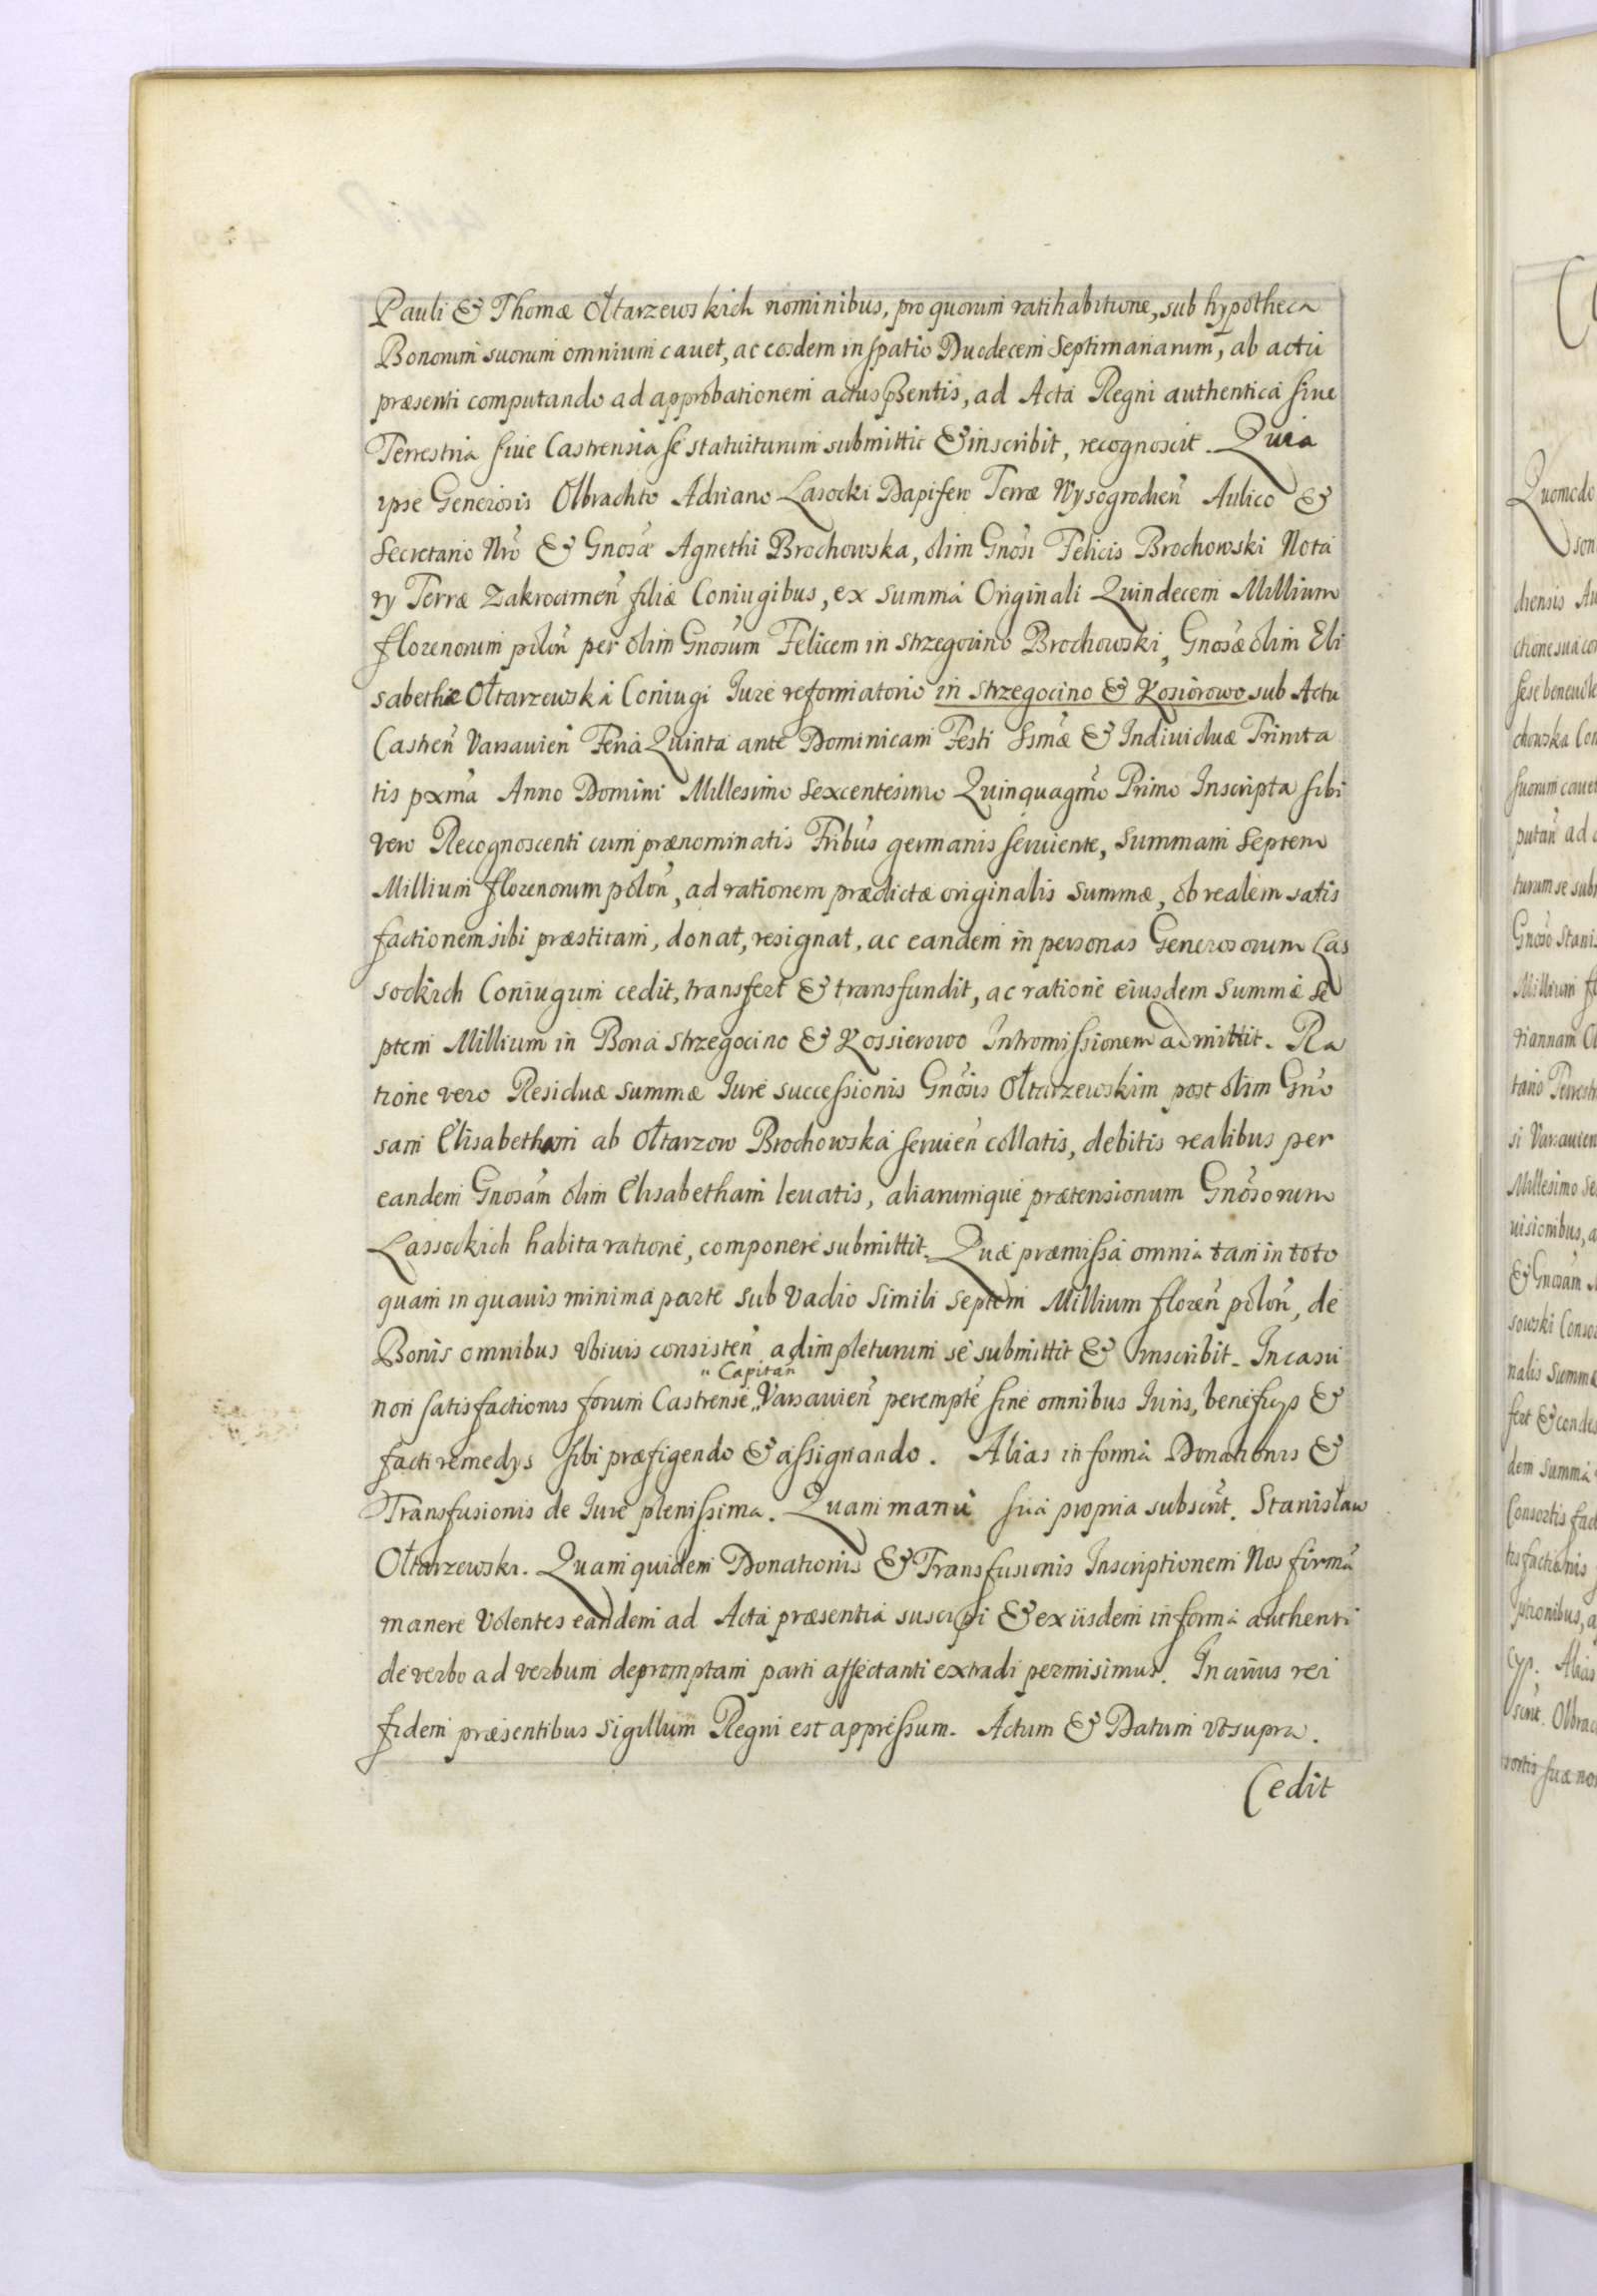 Pauli & Thomæ Ołtarzewskich nominibus, pro quorum ratihabitione, sub hypotheca
Bonorum suorum omnium cauet, ac eosdem in spatio Duodecem Septimanarum, ab actu
præsenti computando ad approbationem actus pñsentis, ad Acta Regni authentica siue
Terrestria siue Castrensia se statuiturum submittit & inscribit, recognoscit. Quia
ipse Generosis Olbrachto Adriano Lasocki Dapifero Terræ Wysogrodień Aulico &
Secretario Nr̃o & Gnosæ Agnethi Brochowska, olim Gnosi Felicis Brochowski Nota
ry Terræ Zakrocimeń filiæ Coniugibus, ex summa Originali Quindecem Millium
florenorum poloń per olim Gnosum Felicem in Strzegocino Brochowski, Gnosæ olim Eli
sabethæ Ołtarzewska Coniugi Iure reformatorio in Strzegocino & Kosiorowo sub Actu
Castreń Varsauień Feria Quinta ante Dominicam Festi Ssmæ & Indiuiduæ Trinita
tis pxma Anno Domini Millesimo Sexcentesimo Quinquagmo Primo Inscripta sibi
vero Recognoscenti cum prænominatis Fribus germanis seruiente, summam Septem
Millium florenorum poloń, ad rationem prædictæ originalis summæ, ob realem satis
factionem sibi præstitam, donat, resignat, ac eandem in personas Generosorum Las
sockich Coniugum cedit, transfert & transfundit, ac ratione eiusdem summæ Se
ptem Millium in Bona Strzegocino & Kossierowo Intromissionem admittit. Ra
tione vero Residuæ summæ Iure successionis Gnosis Ołtarzewskim post olim Gno
sam Elisabetham ab Ołtarzow Brochowska seruień collatis, debitis realibus per
eandem Gnosam olim Elisabetham leuatis, aliarumque prætensionum Gnosorum
Lassockich habita ratione, componere submittit. Quæ præmissa omnia tam in toto
quam in quauis minima parte sub Vadio simili Septem Millium floreń poloń, de
Bonis omnibus vbiuis consisteń adimpleturum se submittit & inscribit. In casu
„ Capitań
non satisfactionis forum Castrense „ Varsauień perempte sine omnibus Iuris, beneficys &
facti remedys sibi præfigendo & assignando. Alias in forma Donationis &
Transfusionis de Iure plenissima. Quam manu sua propria subscrit. Stanisław
Ołtarzewski. Quam quidem Donationis & Transfusionis Inscriptionem Nos firma
manere Volentes eandem ad Acta præsentia suscipi & ex iisdem in forma authenti
de verbo ad verbum depromptam parti affectanti extradi permisimus. In cuius rei
fidem præsentibus sigillum Regni est appressum. Actum & Datum vt supra.
Cedit